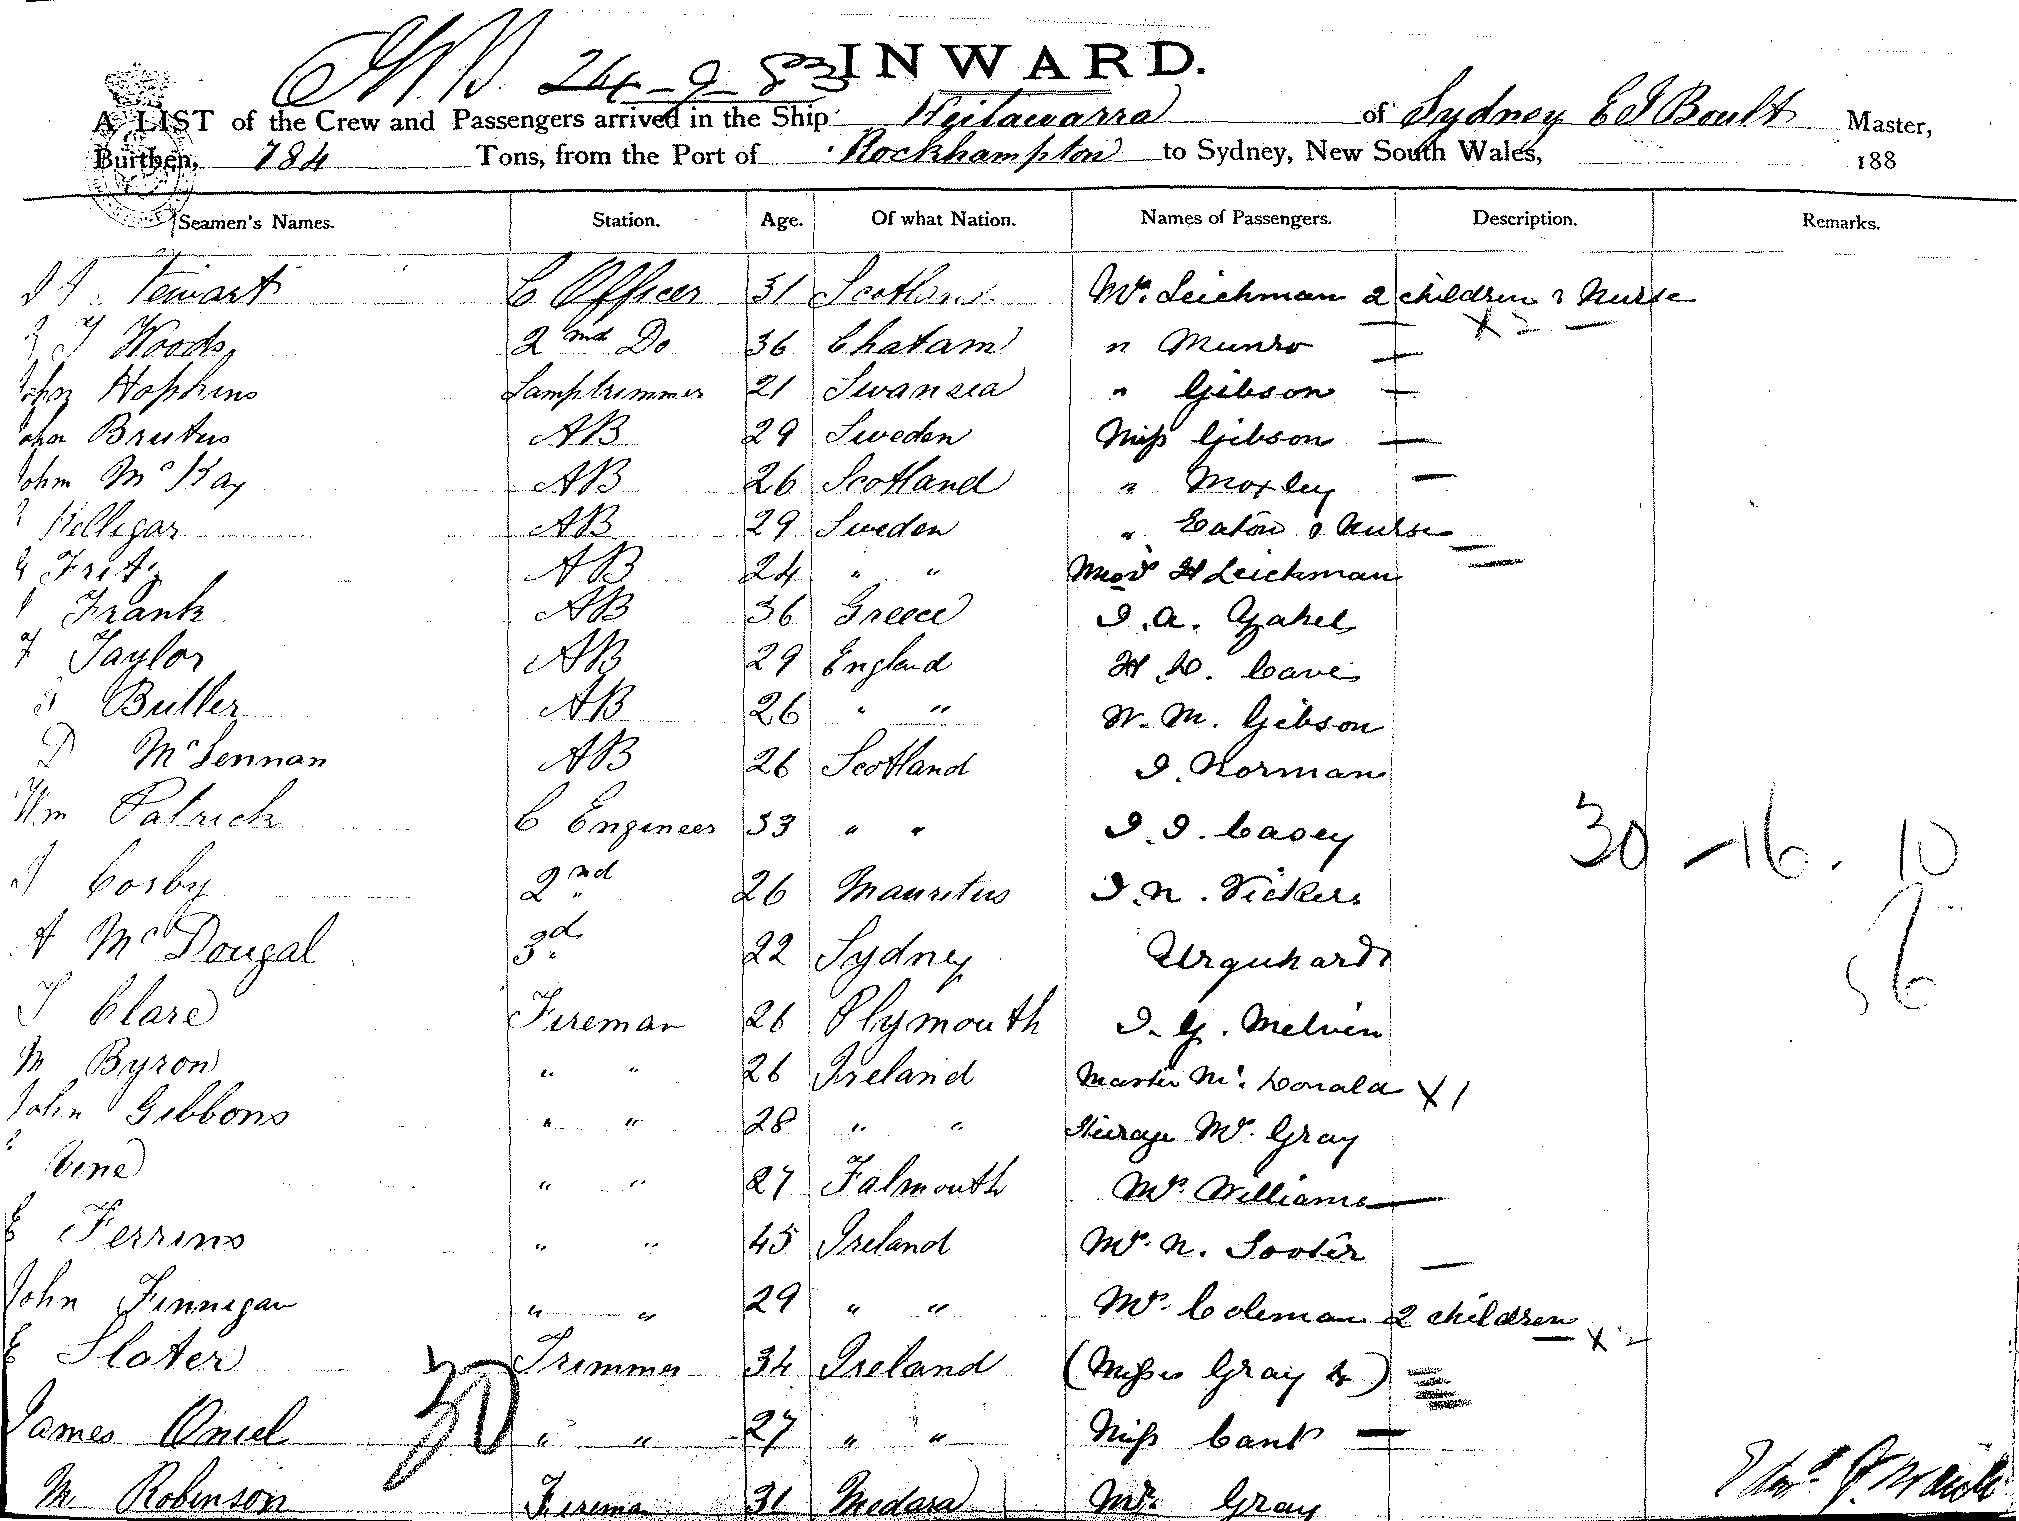 24-9-83 INWARD.
A LIST of the Crew and Passengers arrived in the Ship Keilawarra of Sydney E J Boult Master,
Burthen, 784 Tons, from the Port of Rockhampton to Sydney, New South Wales, 188
Seamen's Names. Station. Age. Of what Nation. Names of Passengers. Description. Remarks.
Tewart C Officer 31 Scotland Mrs. Leichman 2 children & Nurse
Woods 2nd Do 36 Chatam " Munro
John Hopkins Lamptrimmer 21 Swansea " Gibson
John Brutus AB 29 Sweden Miss Gibson
John McKay AB 26 Scotland " Moxley
Kelligar AB 29 Sweden " Eaton & Nurse
Fritz AB 24 " " H Leichman
Frank AB 36 Greece J. A. Zahel
F Taylor AB 29 England H. Cave
Butler AB 26 " " W. M. Gibson
D McLennan AB 26 Scotland J. Norman
Wm Patrick C Engineer 33 " " J. J. Casey 30 - 16. 10
J Cosby 2nd 26 Mauritus J. N. Vickers
A McDougal 3d. 22 Sydney Urquhardt 56
T Clare Fireman 26 Plymouth J. G. Melvin
M Byron " " 26 Ireland Master Mc. Donald X1
John Gibbons " " 28 " " Steerage Mr. Gray
Vine " " 27 Falmouth Mrs. Williams
E Ferrins " " 45 Ireland Mrs. N. Sooter
John Finnigan " " 29 " " Mrs. Coleman 2 children X2
E Slater Trimmer 34 Ireland (Misses Gray 4)
James Oniel 30 " " 27 " " Miss Cant
M Robinson Fireman 31 Medara Mrs. Gray